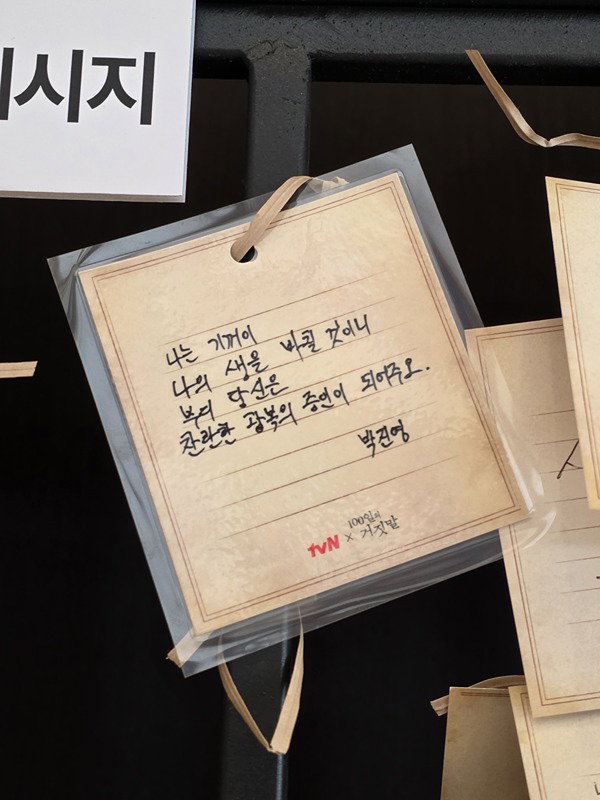 시지
나는 기꺼이
나의 생을 바칠 것이니
부디 당신은
찬란한 광복의 증인이 되어주오.
박진영
tvN × 100일의 거짓말